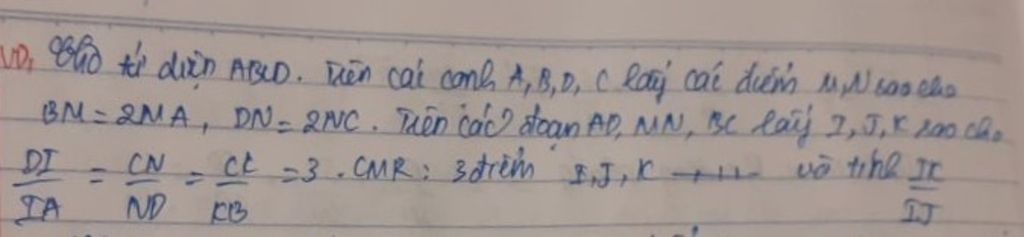 VD: Cho tứ diện ABCD. Trên các cạnh A,B,D,C lấy các điểm M,N sao cho
BM = 2MA, DN = 2NC. Trên các đoạn AD, MN, BC lấy I, J, K sao cho
DI/IA = CN/ND = CK/KB = 3. CMR: 3 điểm I, J, K và tính IK/IJ